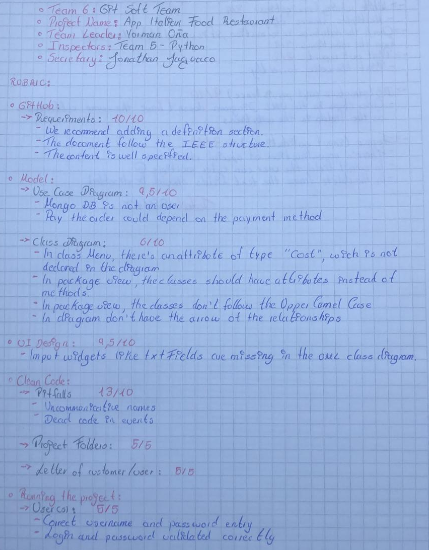 ° Team 6: GPt Soft Team
° Project Name: App Italian Food Restaurant
° Team Leader: Yorman Oña
° Inspectors: Team 5 - Python
° Secretary: Jonathan
RUBRIC:
° GitHub:
→ Requeriments: 10/10
- We recommend adding a definition section.
- The document follow the IEEE structure.
- The content is well specified.
° Model:
→ Use Case Diagram: 9,5/10
- Mongo DB is not an user
- Pay the order could depend on the payment method
→ Class Diagram: 6/10
- In class Menu, there's an attribute of type "Cost", wich is not
declared in the diagram
- In package view, the classes should have attributes instead of
methods.
- In package view, the classes don't follow the Upper Camel Case
- In diagram don't have the arrow of the relationships
° UI Design: 9,5/10
- Input widgets like txt Fields are missing in the class diagram.
° Clean Code:
→ Pitfalls 13/10
- Uncommunicative names
- Dead code in events
→ Project Folders: 5/5
→ Letter of customer/user: 5/5
° Running the project:
→ 5/5
- Correct username and password entry
- Login and password validated correctly